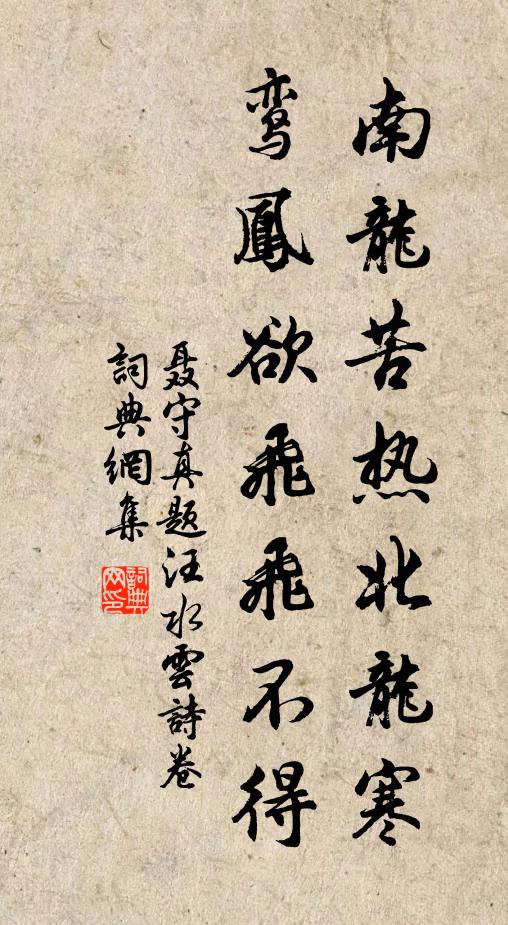 南龍苦热北龍寒
鸾鳳欲飛飛不得
聂守真题汪水雲詩卷
詞典網集
詞典
网印